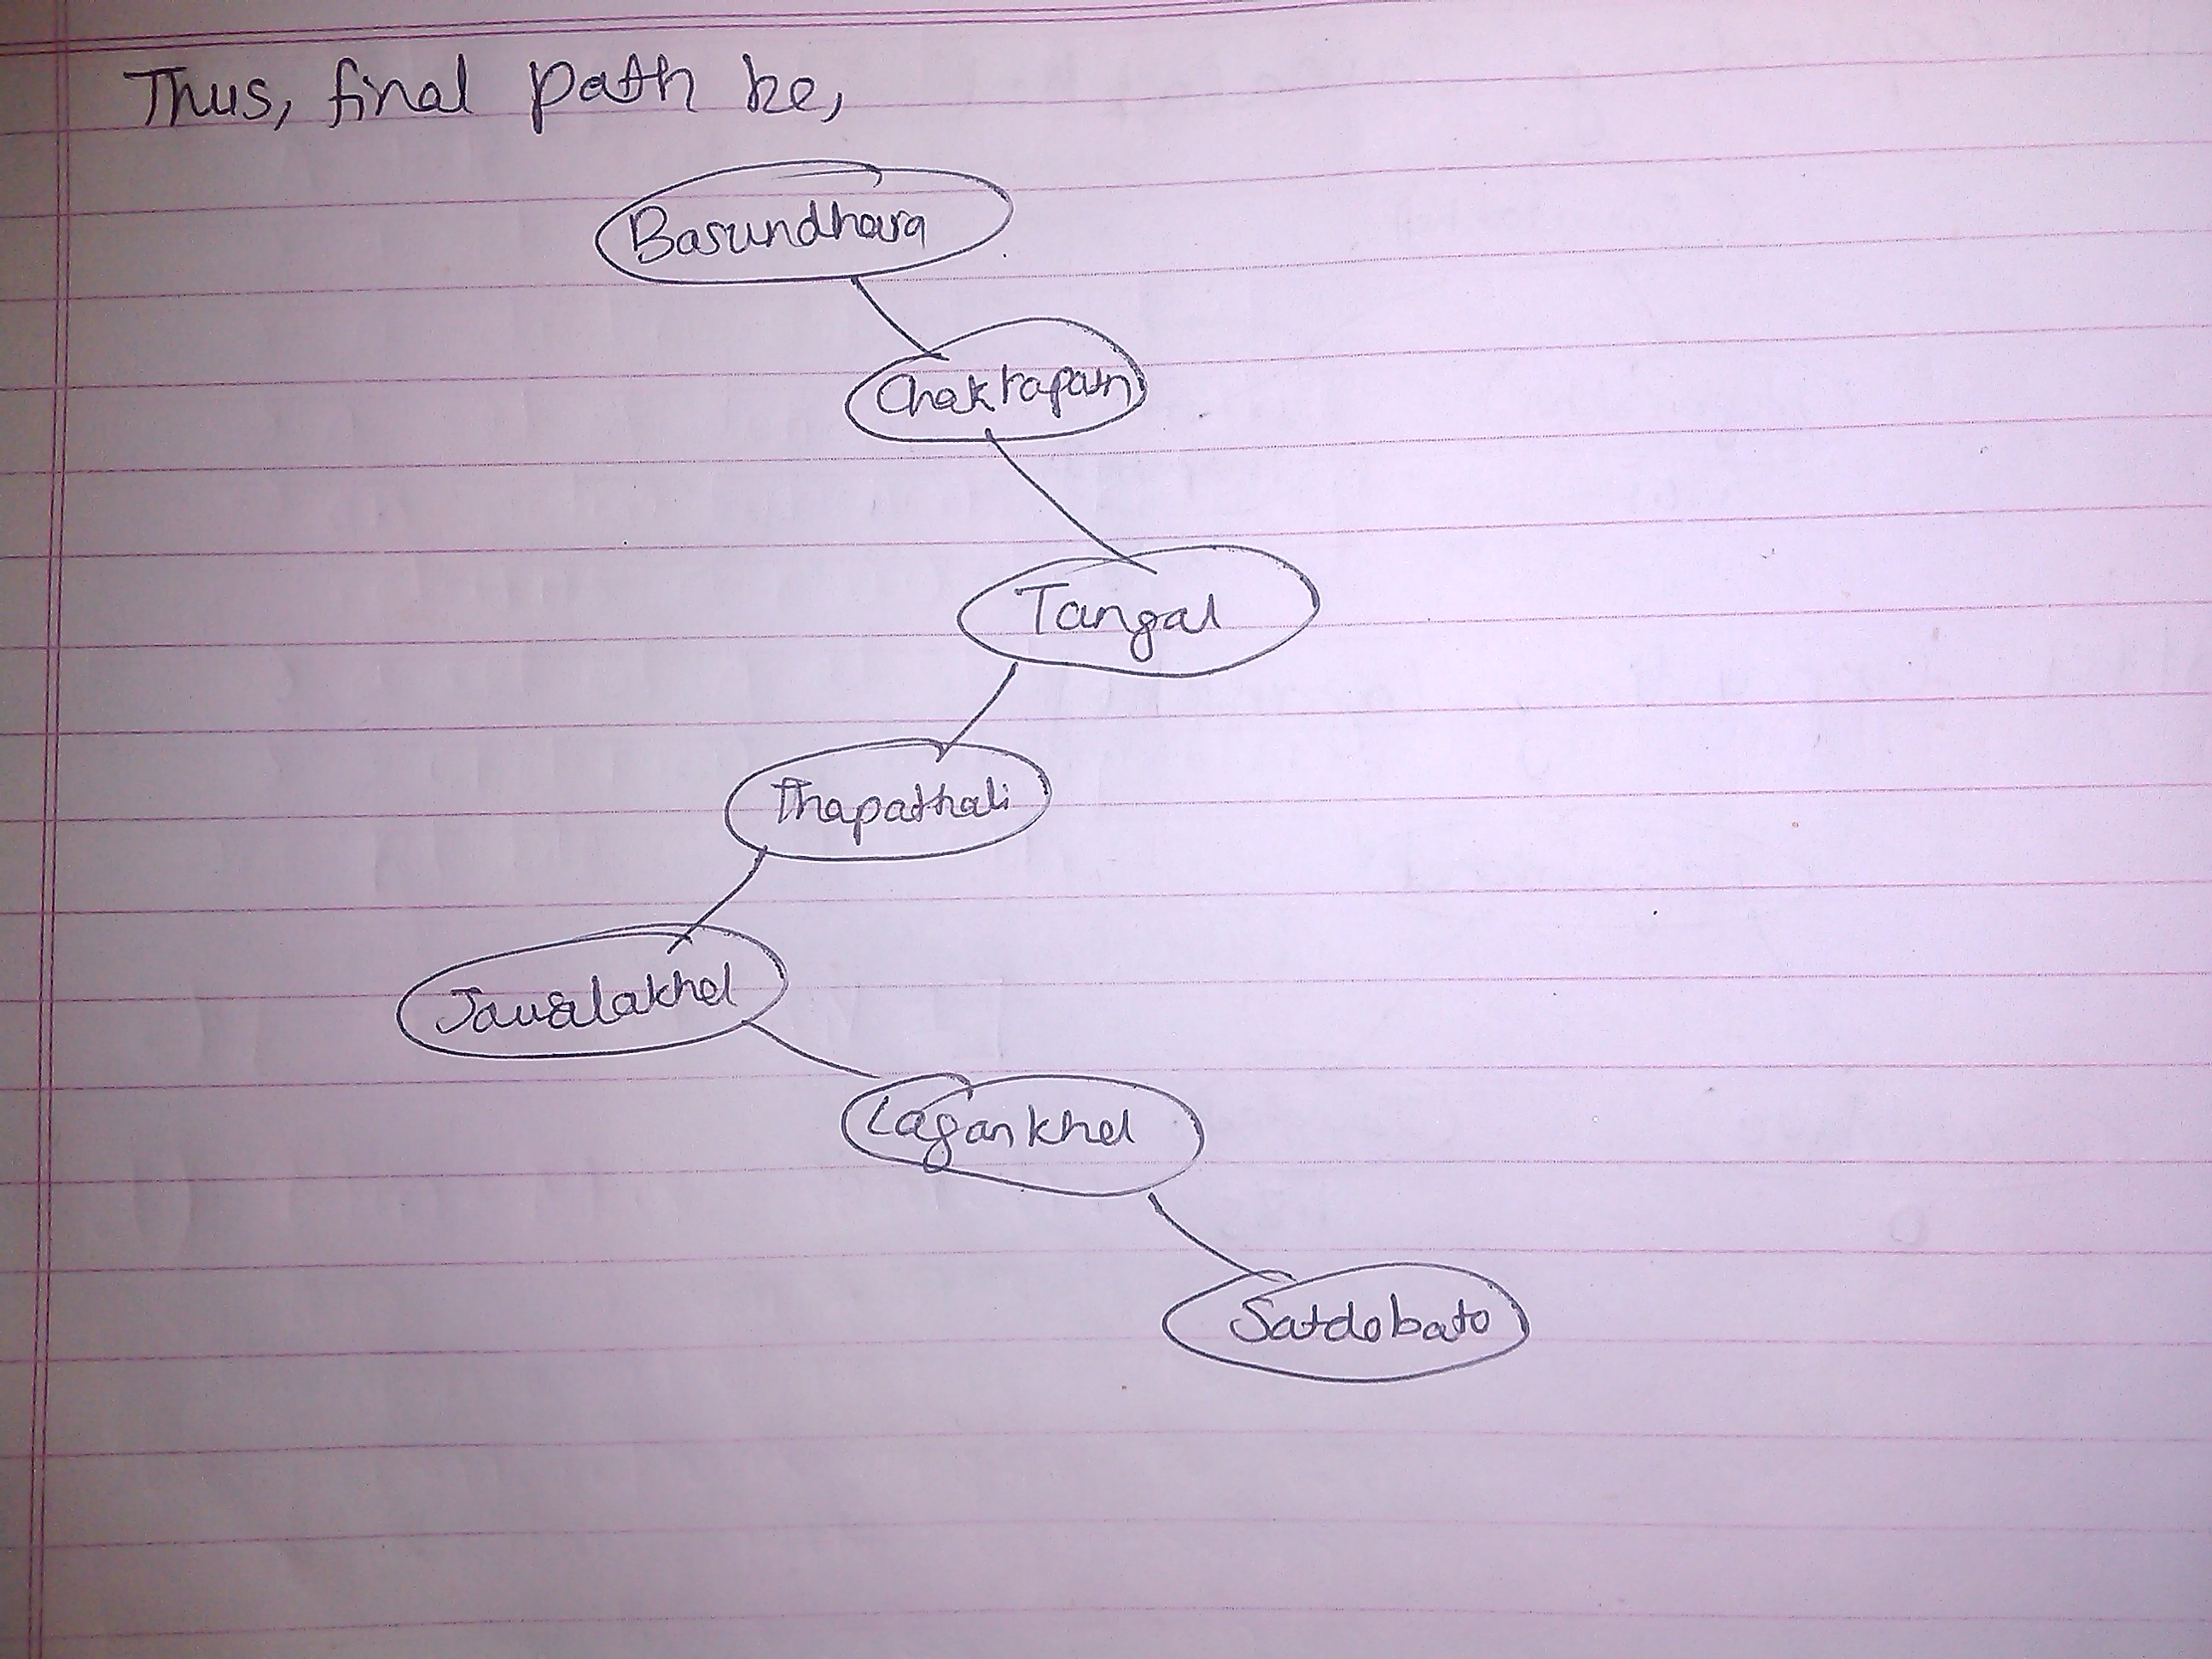 Thus, final path be,
Basundhara
Chakrapath
Tangal
Thapathali
Jawalakhel
Lagankhel
Satdobato